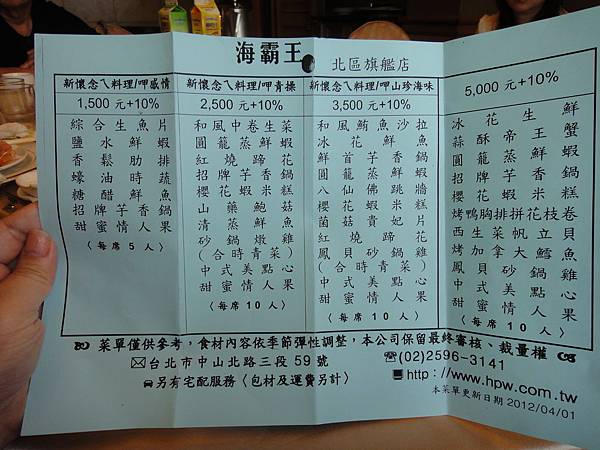 海霸王 北區旗艦店
新懷念ㄟ料理/呷感情
1,500 元+10%
綜合生魚片
鹽水鮮蝦
香鬆肋排
蠔油時蔬
糖醋鮮魚
招牌芋香鍋
甜蜜情人果
〈每席 5 人〉
新懷念ㄟ料理/呷青操
2,500 元+10%
和風中卷生菜
圓籠蒸鮮蝦
紅燒蹄花
招牌芋香鍋
櫻花蝦米糕
山藥鮑菇
清蒸鮮魚
砂鍋燉雞
(合時青菜)
中式美點心
甜蜜情人果
〈每席 10 人〉
新懷念ㄟ料理/呷山珍海味
3,500 元+10%
和風鮪魚沙拉
冰花鮮魚
鮮首芋香鍋
圓籠蒸鮮蝦
八仙佛跳牆
櫻花蝦米糕
菌菇貴妃片
紅燒蹄花
鳳貝砂鍋雞
(合時青菜)
中式美點心
甜蜜情人果
〈每席 10 人〉
5,000 元+10%
冰花生鮮
蒜酥帝王蟹
圓籠蒸鮮蝦
招牌芋香鍋
櫻花蝦米糕
烤鴨胸排拼花枝卷
西生菜帆立貝
烤加拿大鱈魚
鳳貝砂鍋雞
中式美點心
甜蜜情人果
〈每席 10 人〉
菜單僅供參考，食材內容依季節彈性調整，本公司保留最終審核、裁量權
台北市中山北路三段 59 號 (02)2596-3141
另有宅配服務〈包材及運費另計〉 http://www.hpw.com.tw
本菜單更新日期 2012/04/01